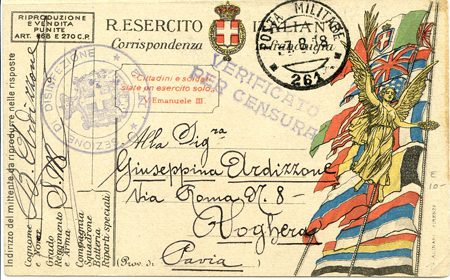 RIPRODUZIONE
E VENDITA
PUNITE
ART. 468 E 270 C.P.
R. ESERCITO ITALIANO
Corrispondenza in franchigia
POSTA MILITARE
1.8.18
* 261 *
"Cittadini e soldati
siate un esercito solo."
V. Emanuele III.
VERIFICATO
PER CENSURA
SEZIONE DISINFEZIONE
Indirizzo del mittente da riprodurre nelle risposte
Cognome e Nome
Ardizzone
Grado
Reggimento e Arma
S. M.
Compagnia
Squadrone
Batteria
Riparti speciali
Alla Sigra
Giuseppina Ardizzone
Via Roma N. 8 -
Voghera
(Prov. di Pavia)
10-